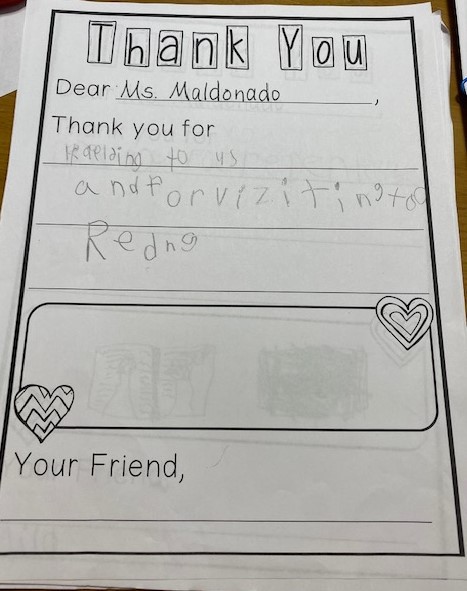 Thank You
Dear Ms. Maldonado,
Thank you for
Raeiding to us
and for vizitingtoo
Redng
Your Friend,